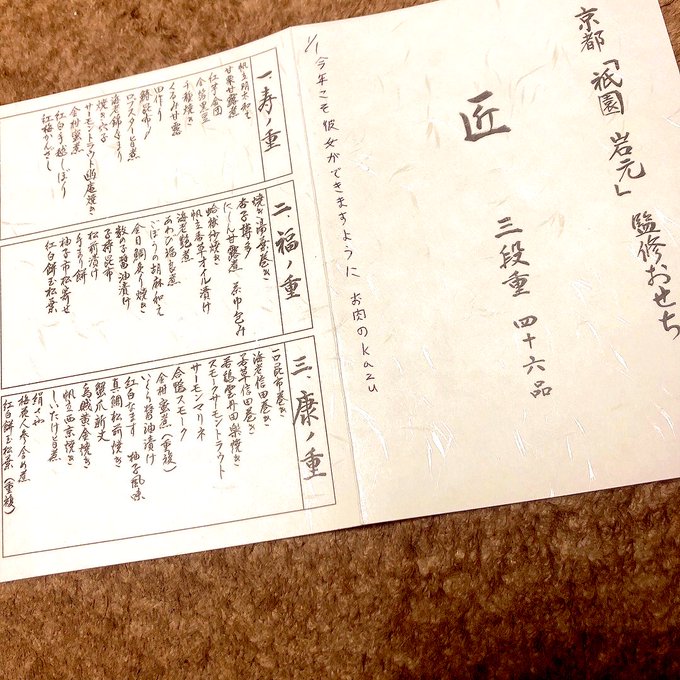 京都「祇園 岩元」監修おせち
匠
三段重 四十六品
1/1 今年こそ彼女ができますように お肉のkazu
一、寿ノ重
帆立明太和え
甘栗甘露煮
紅芋金団
金箔黒豆
千種焼き
くるみ甘露
田作り
昆布〆
ロブスター旨煮
焼き穴子
海老錦手まり
サーモントラウト幽庵焼き
金柑蜜煮
紅白手毬しぼり
紅梅かんざし
二、福ノ重
焼き湯葉巻き
杏子博多
にしん甘露煮 包み
焼き
帆立香草オイル漬け
海老艶煮
あわび福良煮
ごぼうの胡麻和え
金目鯛炙り焼き
数の子醤油漬け
子持昆布
松前漬け
手まり餅
柚子市松寄せ
紅白餅玉松葉
三、康ノ重
一口昆布巻き
海老信田巻き
若草信田巻き
若鶏雲丹田楽焼き
スモークサーモントラウト
サーモンマリネ
合鴨スモーク
金柑蜜煮（重複）
いくら醤油漬け
紅白なます 柚子風味
真鯛松前焼き
蟹爪新丈
烏賊黄金焼き
帆立西京焼き
しいたけ旨煮
絹さや
梅花人参含め煮
紅白餅玉松葉（重複）